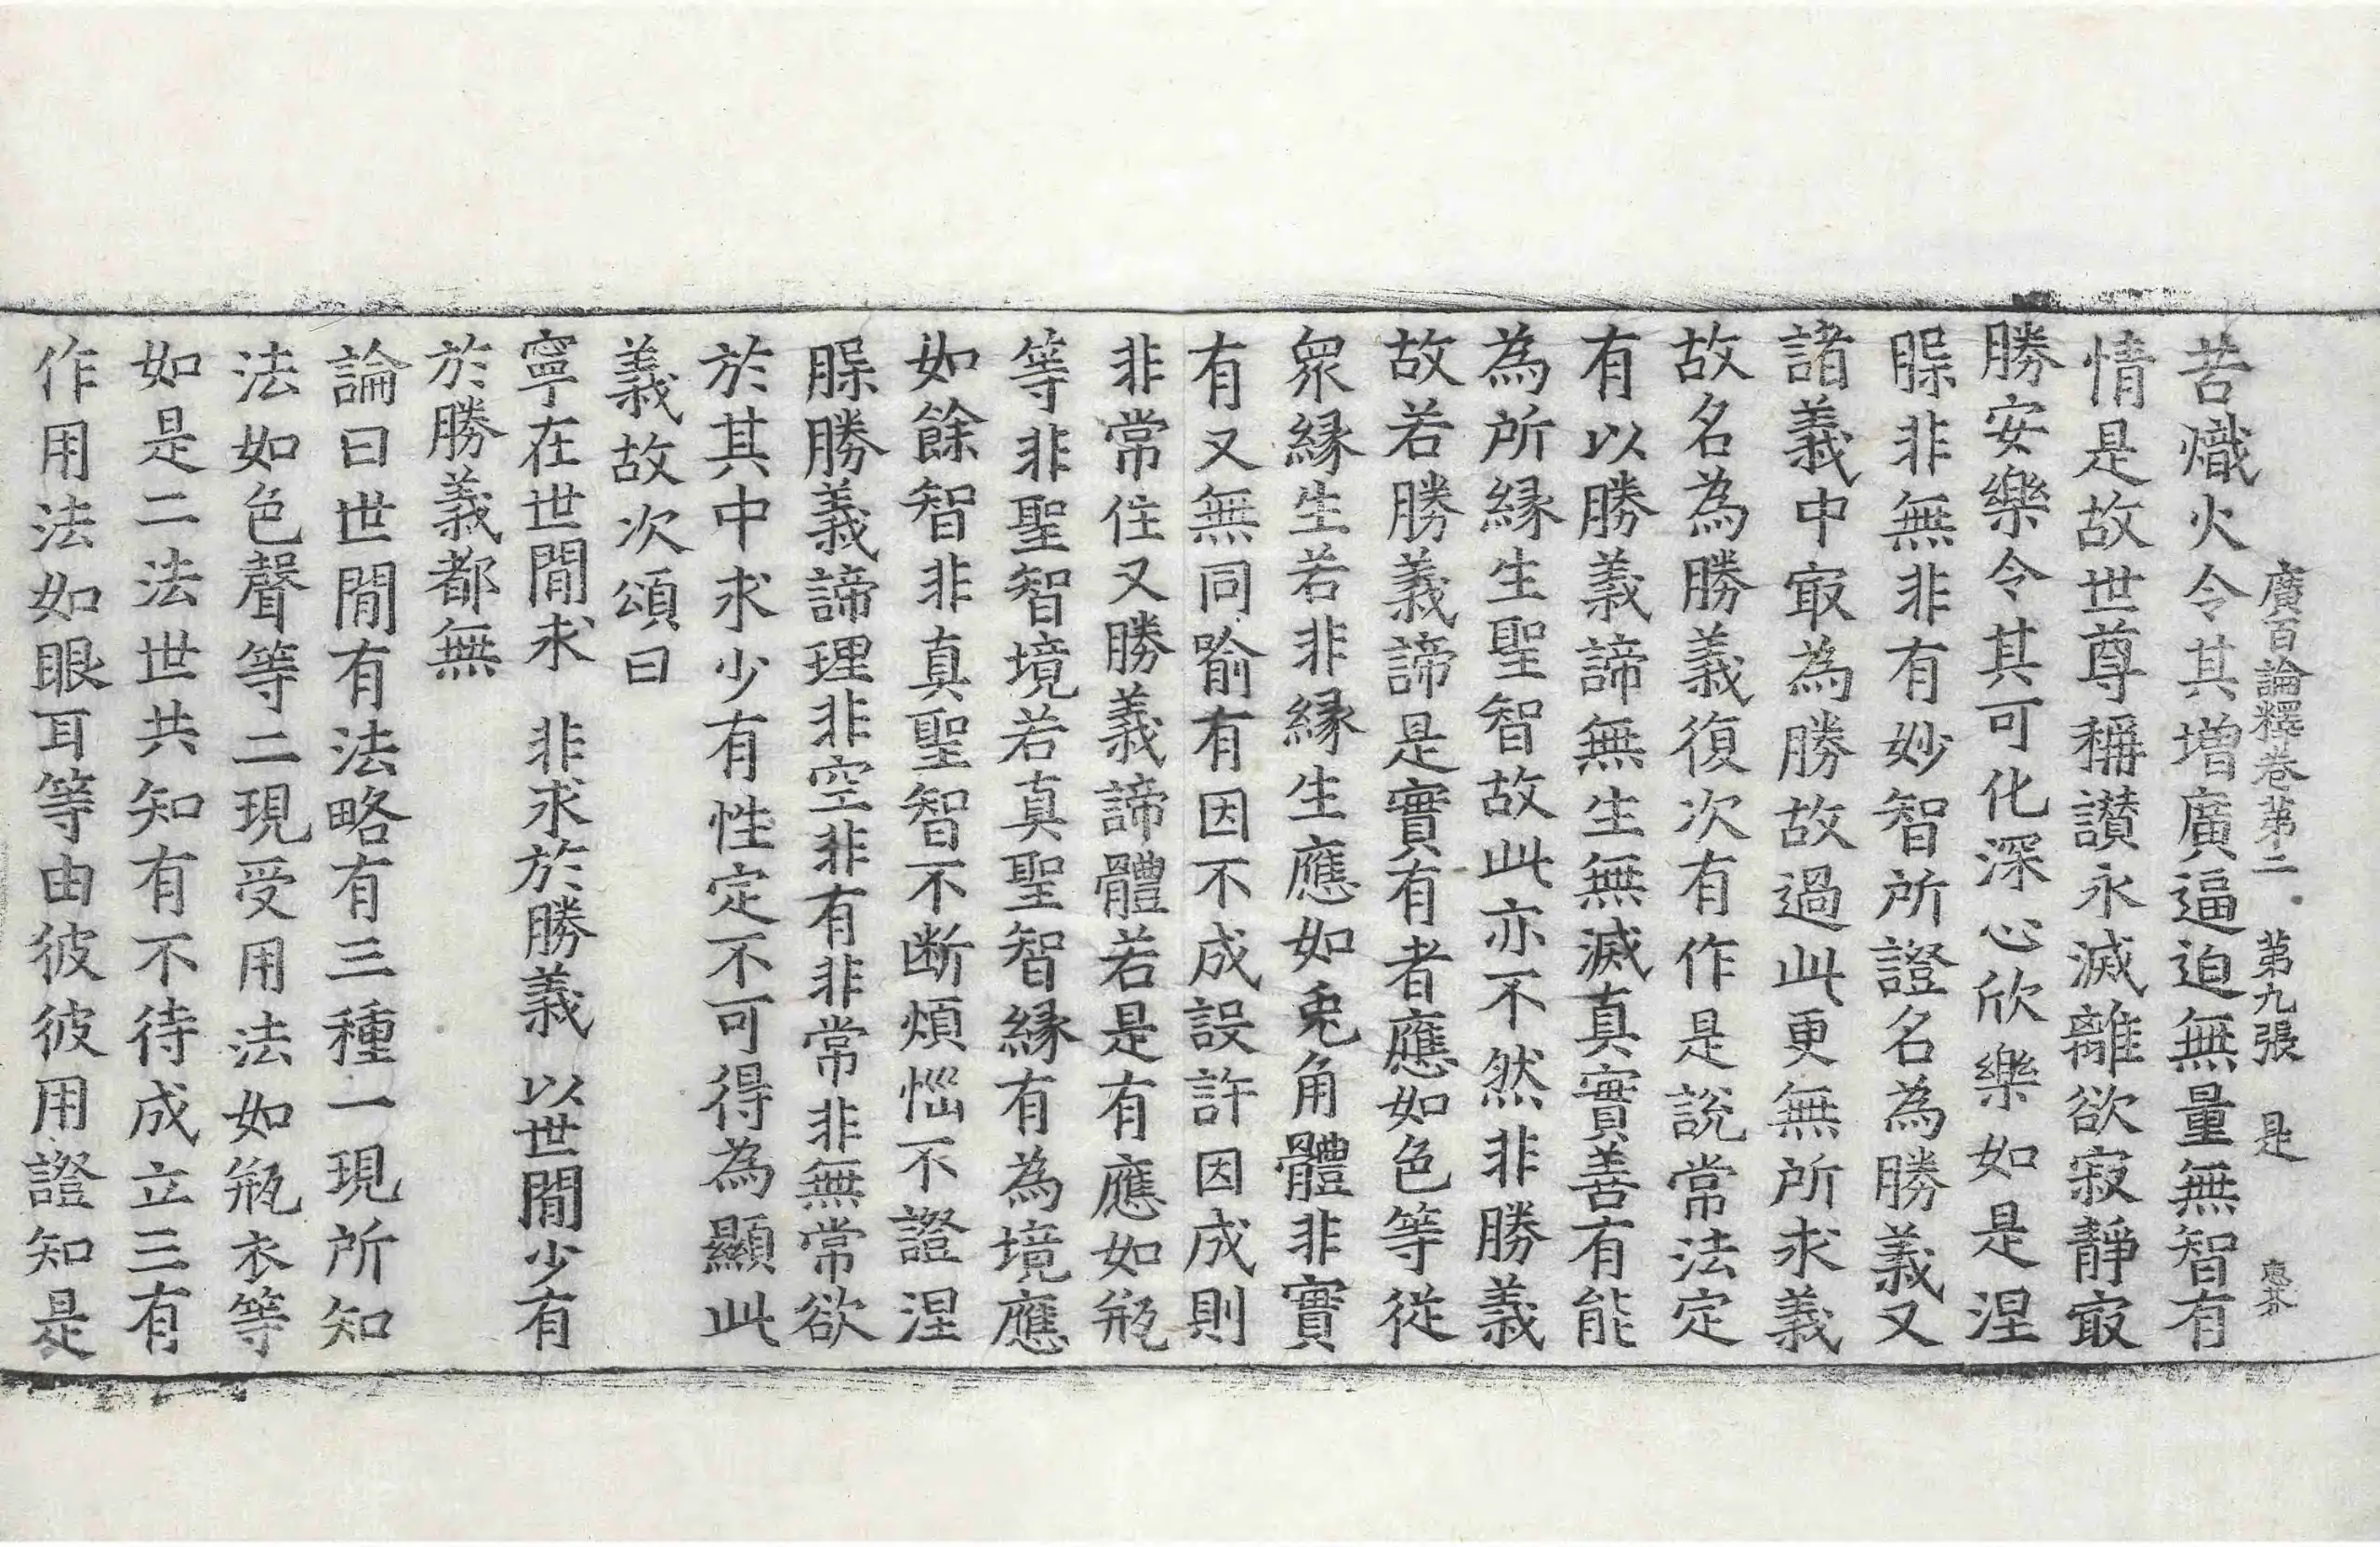 廣百論釋卷第二 第九張 是
苦熾火令其增廣逼迫無量無智有
情是故世尊稱讃永滅離欲寂靜㝡
勝安樂令其可化深心欣樂如是涅
䏶非無非有妙智所證名為勝義又
諸義中㝡為勝故過此更無所求義
故名為勝義復次有作是說常法定
有以勝義諦無生無滅真實善有能
為所緣生聖智故此亦不然非勝義
故若勝義諦是實有者應如色等從
眾緣生若非緣生應如兎角體非實
有又無同喻有因不成設許因成則
非常住又勝義諦體若是有應如瓶
等非聖智境若真聖智緣有為境應
如餘智非真聖智不断煩惱不證涅
䏶勝義諦理非空非有非常非無常欲
於其中求少有性定不可得為顯此
義故次頌曰
寧在世間求 非求於勝義 以世間少有
於勝義都無
論曰世間有法略有三種一現所知
法如色聲等二現受用法如瓶衣等
如是二法世共知有不待成立三有
作用法如眼耳等由彼彼用證知是